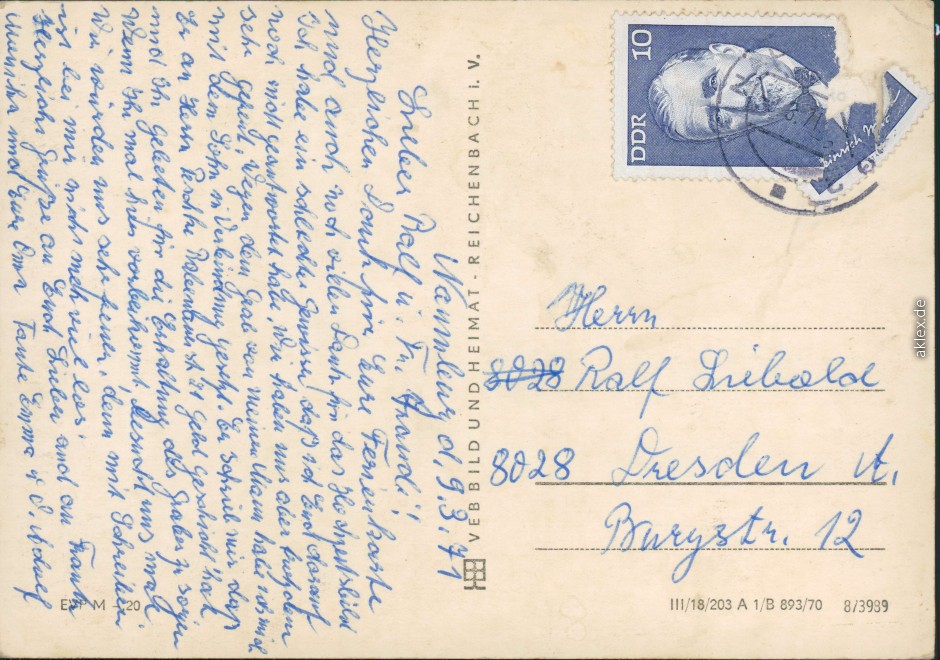 Naumburg d. 9.3.71
Lieber Ralf u. Fr. Traudi!
Herzlichen Dank für Eure Ferienkarte
und auch noch vielen Dank für das Hochzeitsbild
Ich habe ein schlechtes Gewissen daß ich Euch darauf
noch nicht geantwortet habe, Wir haben uns aber trotzdem
sehr gefreut, Wegen dem Grab von meinen Mann habe ich mich
mit dem in Verbindung gesetzt. Er schrieb mir daß
Er an Herrn Geld geschickt hat
und Ihn gebeten für die Erhaltung des Grabes zu sorgen
Wenn Ihr mal hier vorbeikommt, besucht uns mal
Wir würden uns sehr freuen, denn mit Schreiben
ist bei mir nicht mehr viel los.
Herzliche Grüße an Euch Lieben und an
und Eure Oma Tante Emma u. O.
VEB BILD UND HEIMAT - REICHENBACH i. V.
DDR 10
Heinrich
Herrn
8028 Ralf Liebold
8028 Dresden A.
Burgstr. 12
M - 20
III/18/203 A 1/B 893/70 8/3989
aklex.de